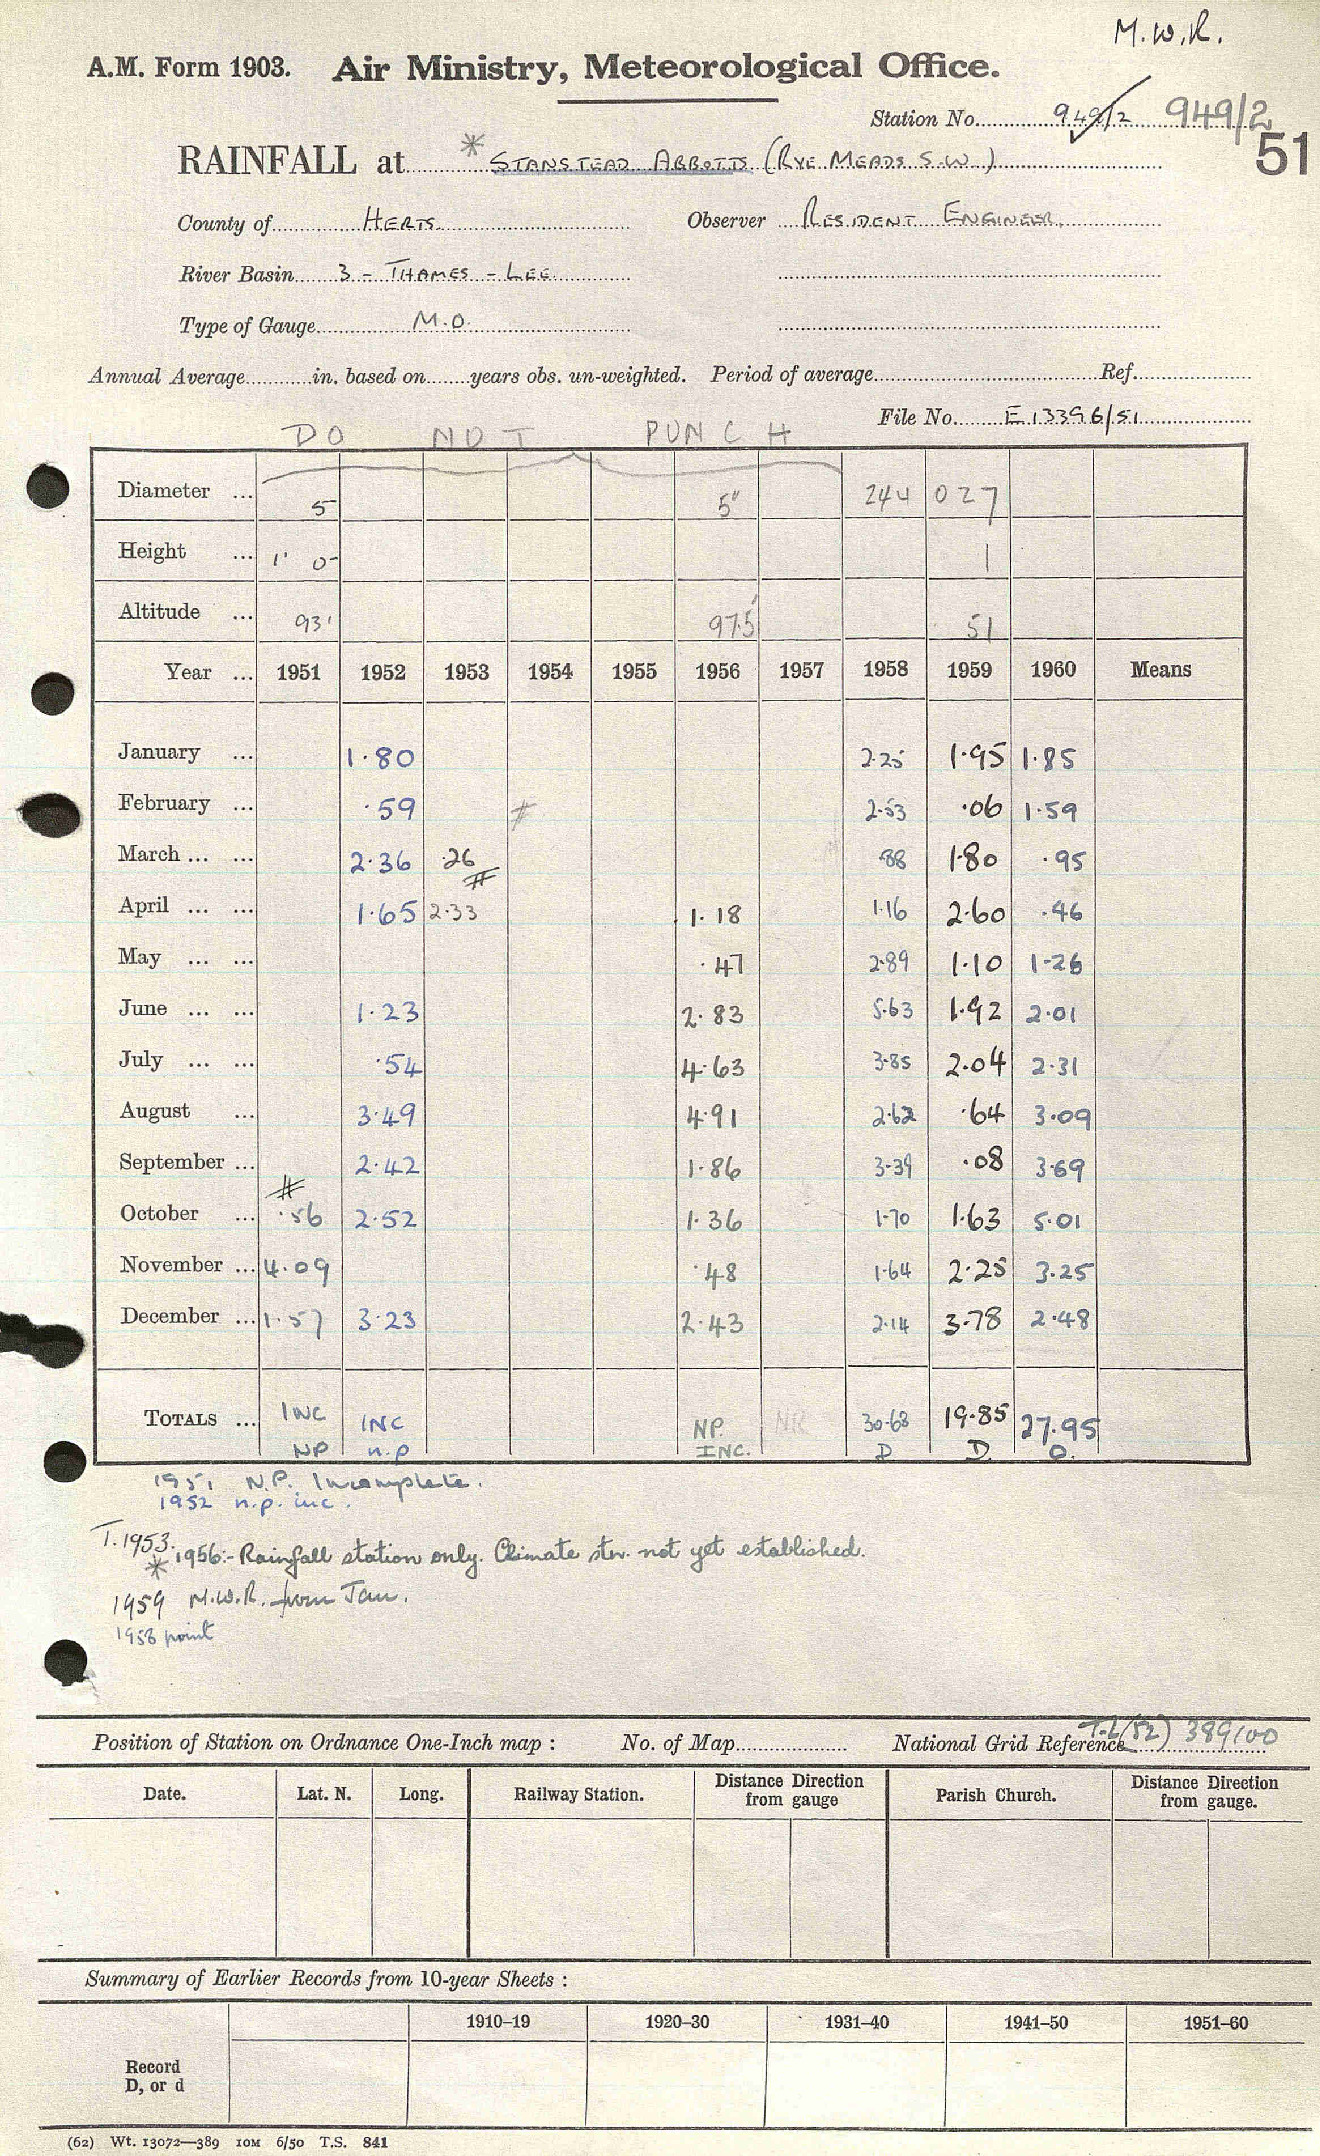 M.W.R.
A.M. Form 1903. Air Ministry, Meteorological Office.
Station No. 949/2 949/2
51
RAINFALL at * STANSTEAD ABBOTTS (RYE MEADS S.W.)
County of HERTS. Observer RESIDENT ENGINEER
River Basin 3 - THAMES - LEE
Type of Gauge M.O.
Annual Average in. based on years obs. un-weighted. Period of average Ref.
File No. E 13396/51
DO NOT PUNCH
Diameter ... 5 5" 244 027
Height ... 1' 0" 1
Altitude ... 93' 97.5' 51
Year ... 1951 1952 1953 1954 1955 1956 1957 1958 1959 1960 Means
January ... 1.80 2.25 1.95 1.85
February ... .59 # 2.53 .06 1.59
March ... ... 2.36 .26 # .88 1.80 .95
April ... ... 1.65 2.33 1.18 1.16 2.60 .46
May ... ... .47 2.89 1.10 1.26
June ... ... 1.23 2.83 5.63 1.92 2.01
July ... ... .54 4.63 3.85 2.04 2.31
August ... 3.49 4.91 2.62 .64 3.09
September ... 2.42 1.86 3.39 .08 3.69
October ... # .56 2.52 1.36 1.70 1.63 5.01
November ... 4.09 .48 1.64 2.25 3.25
December ... 1.57 3.23 2.43 2.14 3.78 2.48
TOTALS ... INC INC NP. NR 30.68 19.85 27.95
NP n.p INC. D D. D.
1951 N.P. Incomplete.
1952 n.p. inc.
T. 1953.
* 1956:- Rainfall station only. Climate stn. not yet established.
1959 M.W.R. from Jan.
1958 point
Position of Station on Ordnance One-Inch map : No. of Map National Grid Reference TL(52) 389100
Date. Lat. N. Long. Railway Station. Distance Direction from gauge Parish Church. Distance Direction from gauge.
Summary of Earlier Records from 10-year Sheets :
1910–19 1920–30 1931–40 1941–50 1951–60
Record
D, or d
(62) Wt. 13072—389 10M 6/50 T.S. 841